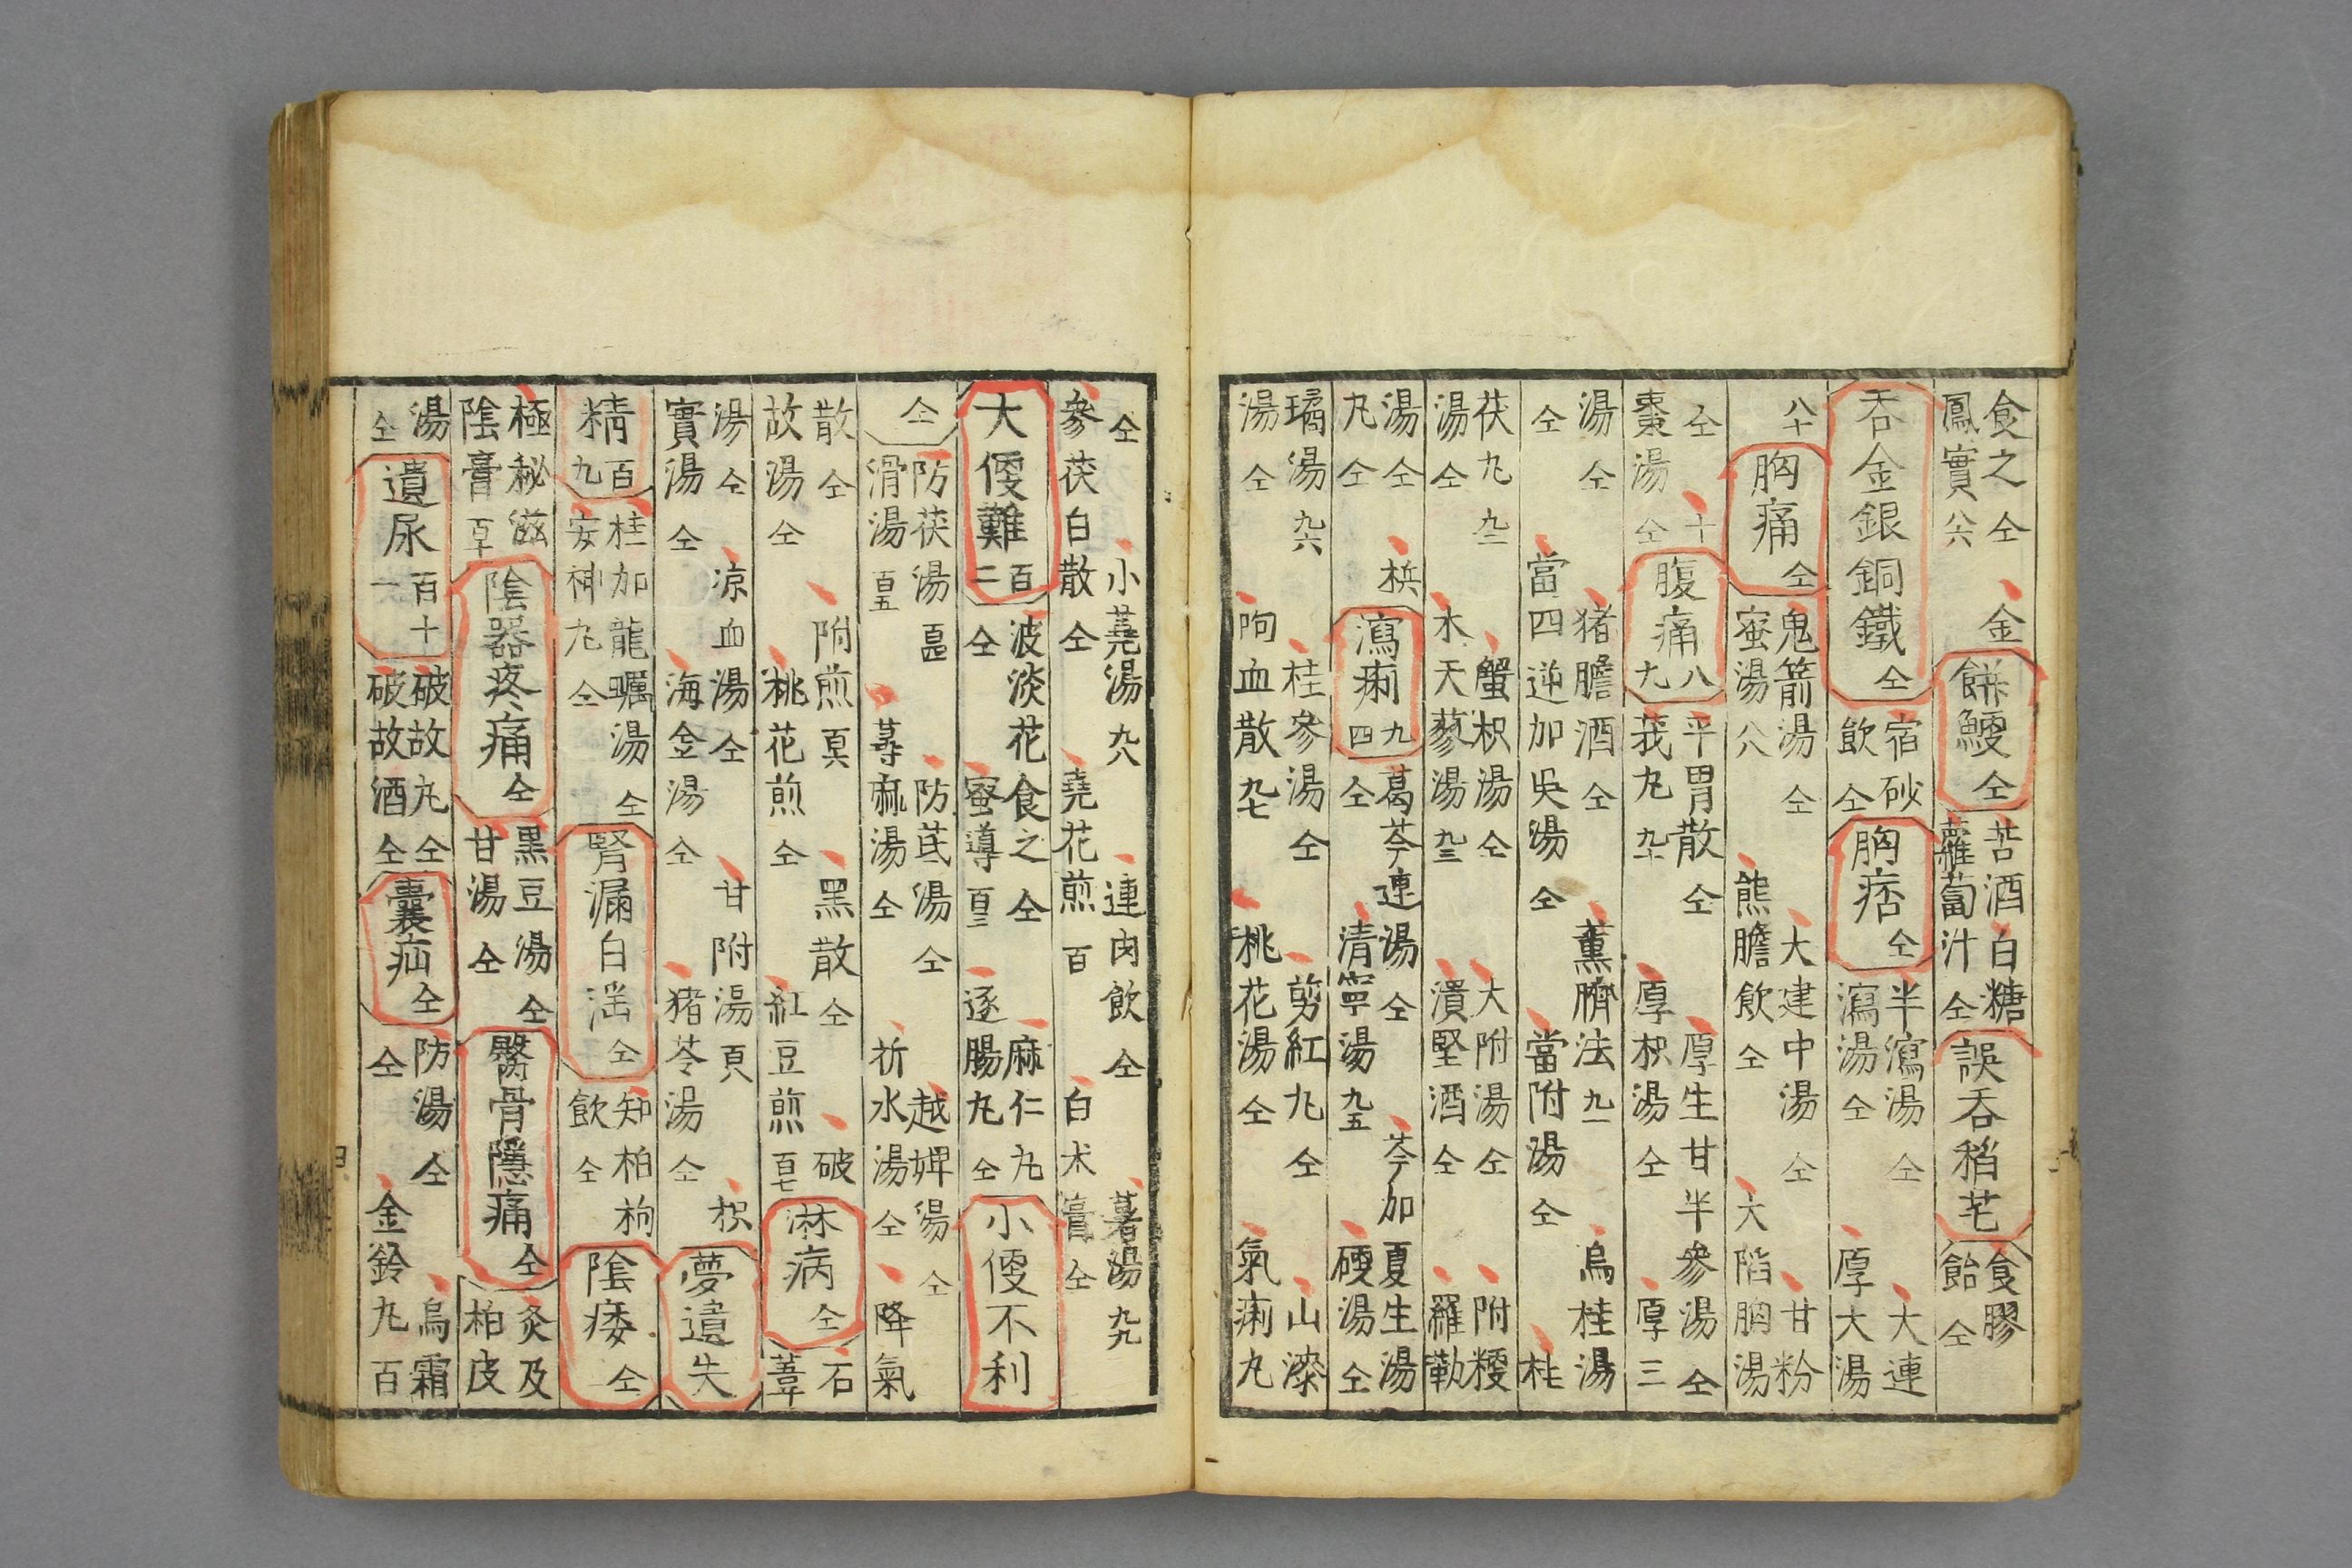 食之仝 金
鳳實八六
餅鯁仝
苦酒白糖
蘿蔔汁仝
誤吞稻芒
食膠
飴仝
吞金銀銅鐵仝
宿砂
飲仝
胸痞仝
半瀉湯仝 大連
瀉湯仝 厚大湯
八十
胸痛仝
鬼箭湯仝 大建中湯仝 甘粉
蜜湯八八 熊膽飲仝 大陷胸湯
仝 十
棗湯仝
腹痛八九
平胃散仝 厚生甘半參湯仝
莪丸九十 厚枳湯仝 厚三
湯仝 猪膽酒仝 薰臍法九一 烏桂湯
仝 當四逆加吳湯仝 當附湯仝 桂
茯丸九二 蟹枳湯仝 大附湯仝 附粳
湯仝 木天蓼湯九三 潰堅酒仝 羅勒
湯仝 梹
丸仝
瀉痢九四
葛芩連湯仝 芩加夏生湯
仝 清寧湯九五 硬湯仝
橘湯九六 桂參湯仝 剪紅丸仝 山漆
湯仝 呴血散九七 桃花湯仝 氣痢丸
仝 小蕘湯九八 連肉飲仝 薯湯九九
參茯白散仝 蕘花煎百 白朮膏仝
大便難百二
波淡花食之仝 麻仁丸
仝 蜜導百三 逐腸丸仝
小便不利
仝
防茯湯百四 防芪湯仝 越婢湯仝
滑湯百五 蕁麻湯仝 折水湯仝 降氣
散仝 附煎百六 黑散仝 破
故湯仝 桃花煎仝 紅豆煎百七
淋病仝
石
葦
湯仝 凉血湯仝 甘附湯百八 枳
實湯仝 海金湯仝 猪苓湯仝
夢遺失
精百九
桂加龍蠣湯仝
安神丸仝
腎漏白淫仝
知柏枸
飲仝
陰痿仝
極秘滋
陰膏百十
陰器疼痛仝
黑豆湯仝
甘湯仝
臀骨隱痛仝
灸及
柏皮
湯
仝
遺尿百十一
破故丸仝
破故酒仝
囊疝仝
防湯仝 烏霜
仝 金鈴丸百